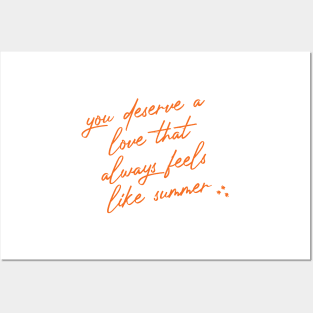 you deserve a
love that
always feels
like summer